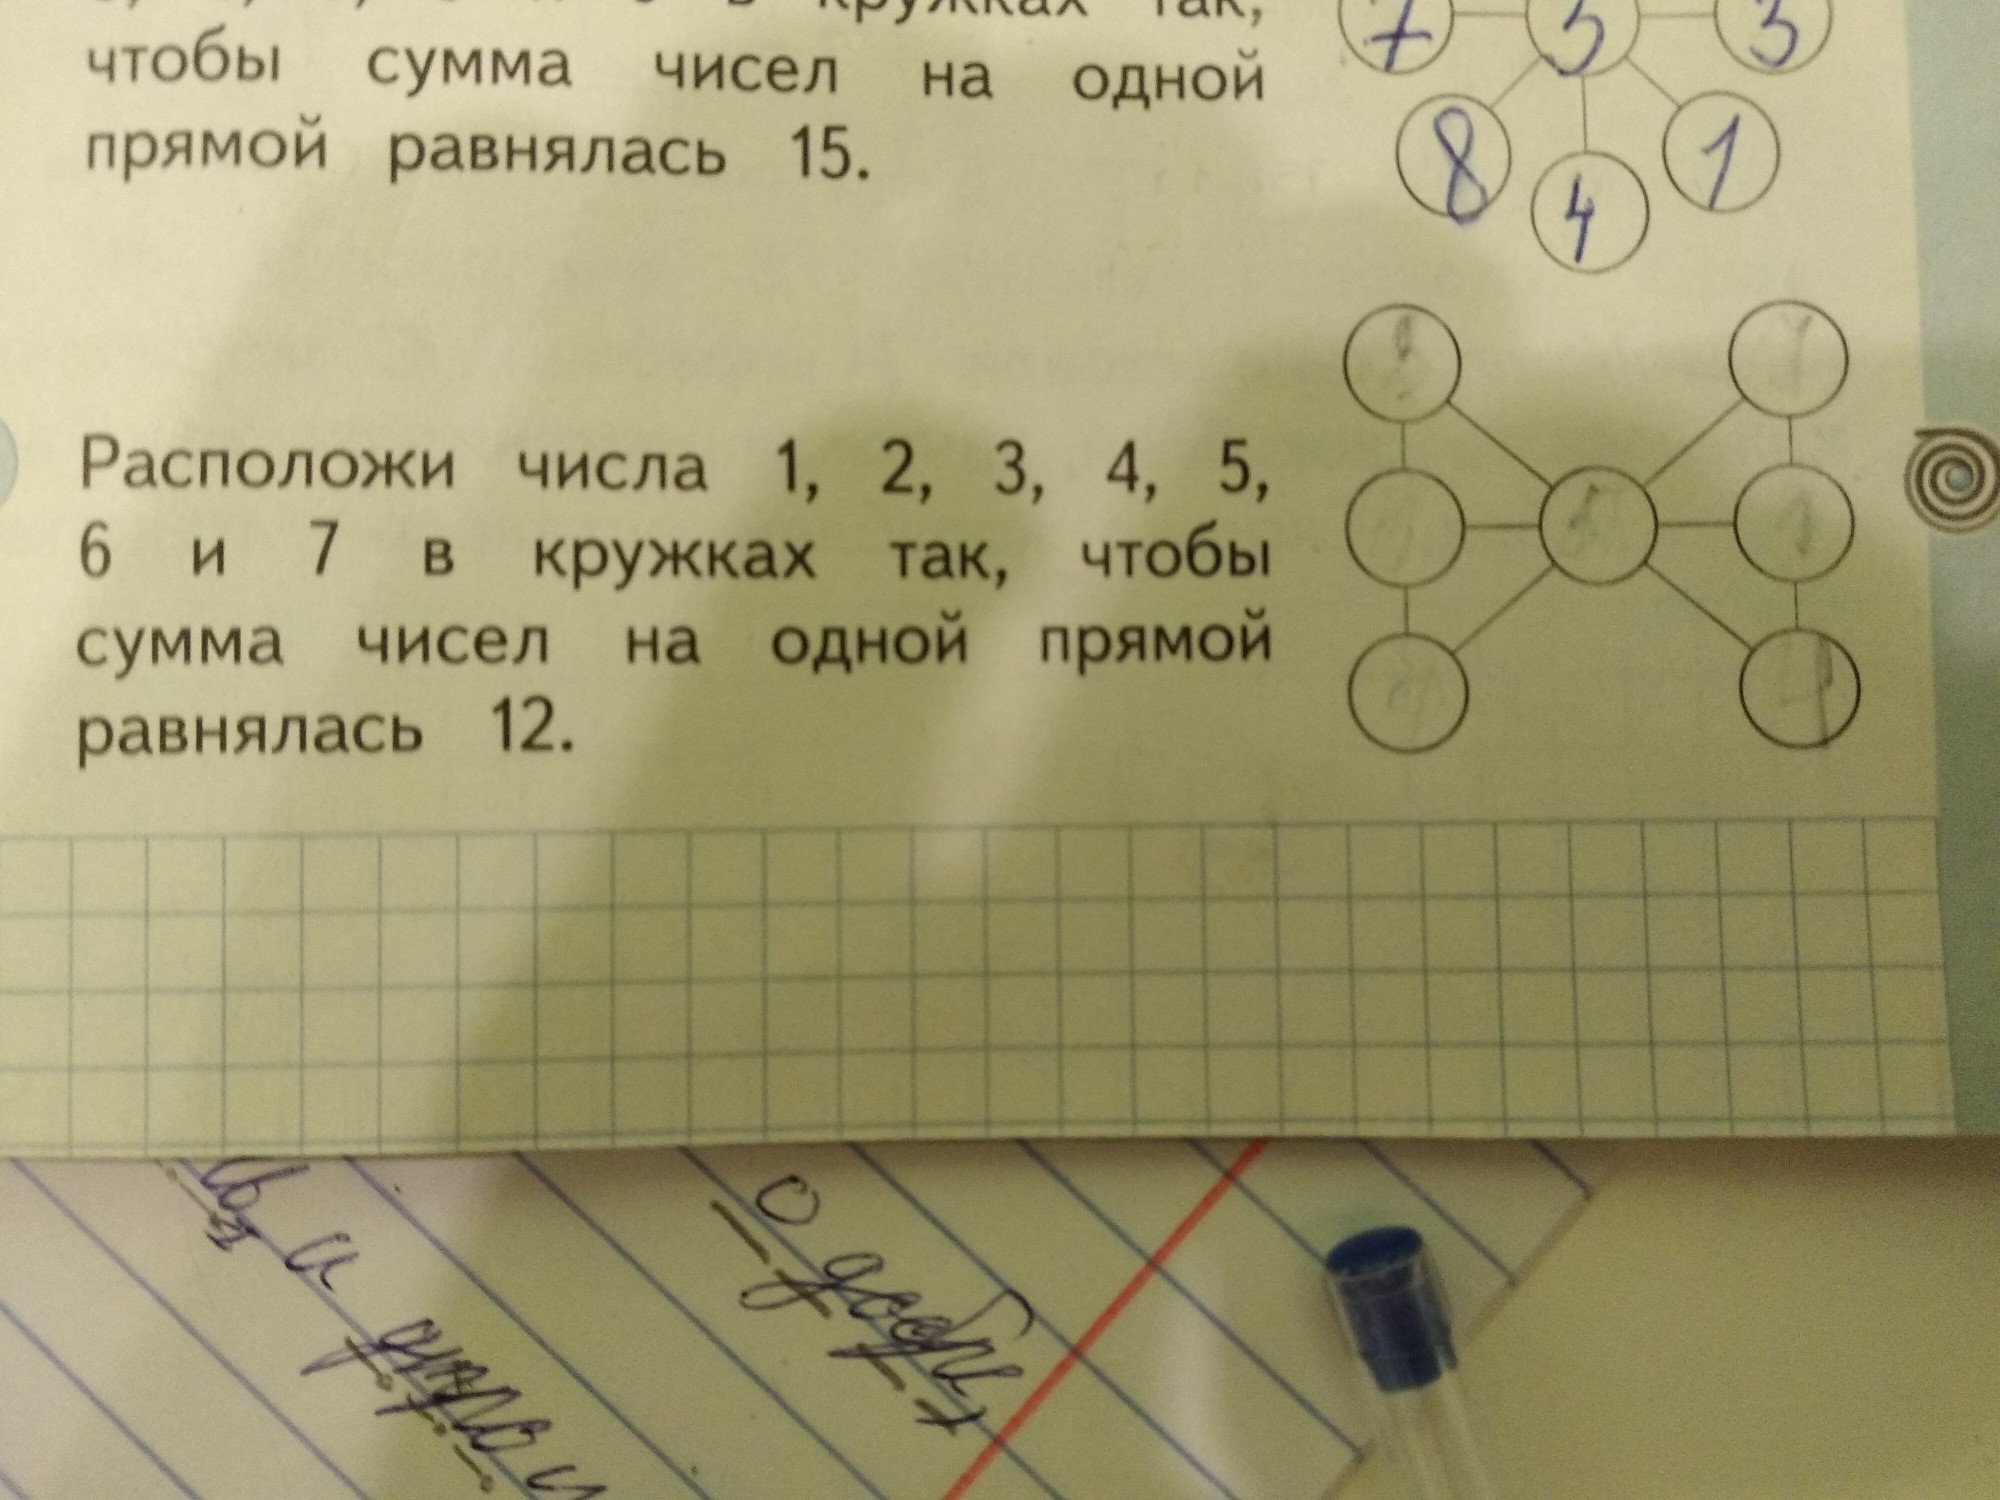 в кружках так,
чтобы сумма чисел на одной
прямой равнялась 15.
7 5 3
8 4 1
Расположи числа 1, 2, 3, 4, 5,
6 и 7 в кружках так, чтобы
сумма чисел на одной прямой
равнялась 12.
и
о добр